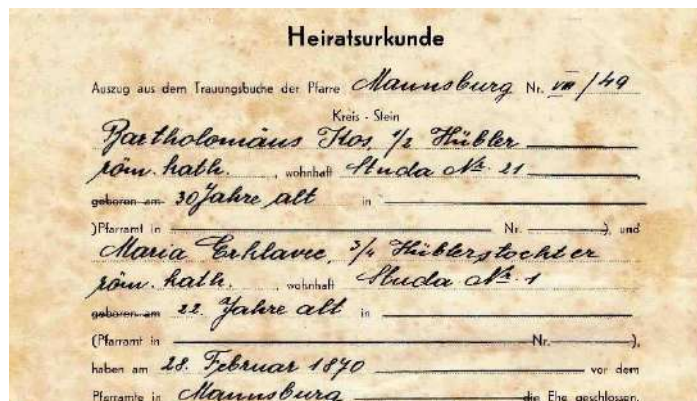 Heiratsurkunde
Auszug aus dem Trauungsbuche der Pfarre Mannsburg Nr. VIII/49
Kreis - Stein
Bartholomäus Kos, 1/2 Hübler
röm. kath. , wohnhaft Studa Nr. 21
geboren am 30 Jahre alt in
)Pfarramt in Nr. ), und
Maria Erklavec, 3/4 Hüblerstochter
röm. kath. , wohnhaft Studa Nr. 1
geboren am 22. Jahre alt in
(Pfarramt in Nr. ),
haben am 28. Februar 1870 vor dem
Pfarramte in Mannsburg die Ehe geschlossen.